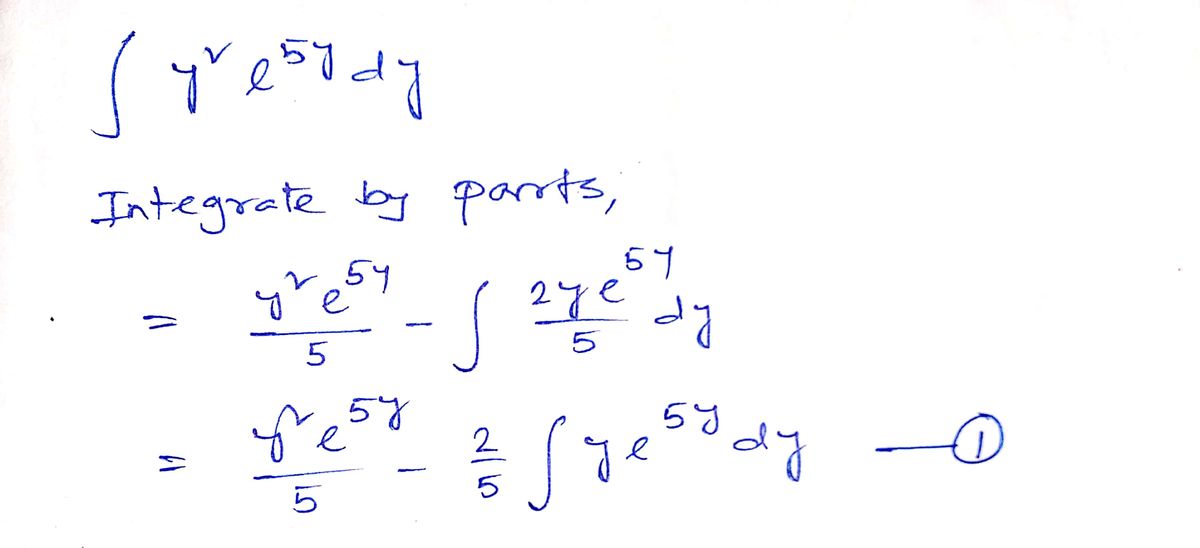 ∫ y² e^{5y} dy
Integrate by parts,
= \frac{y² e^{5y}}{5} - ∫ \frac{2y e^{5y}}{5} dy
= \frac{y² e^{5y}}{5} - \frac{2}{5} ∫ y e^{5y} dy —①